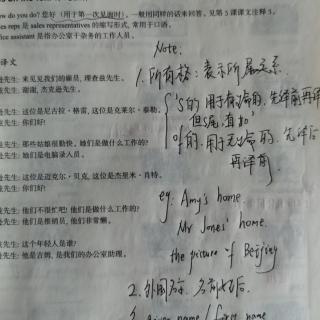 ow do you do? 您好（用于第一次见面时），一般用同样的话来回答。见第 5 课课文注释 3。
es reps 是 sales representatives 的缩写形式，常用于口语。
ice assistant 是指办公室干杂务的工作人员。
Note:
译文
1. 所有格：表示所属关系
先生: 来见见我们的雇员，理查兹先生。
先生: 谢谢，杰克逊先生。
's的，用于有命的，先译前再译
但s尾，直加'
先生: 这位是尼古拉·格雷，这位是克莱尔·泰勒。
先生: 你们好!
of的：用于无命的，先译后
再译前
先生: 那些姑娘很勤快。她们是做什么工作的?
先生: 她们是电脑录入员。
eg: Amy's home
先生: 这位是迈克尔·贝克，这位是杰里米·肖特。
先生: 你们好!
Mr Jones' home
先生: 他们不很忙吧! 他们是做什么工作的?
先生: 他们是推销员，他们非常懒。
the picture of Beijing
先生: 这个年轻人是谁?
先生: 他是吉姆，是我们的办公室助理。
2. 外国
given name / first name